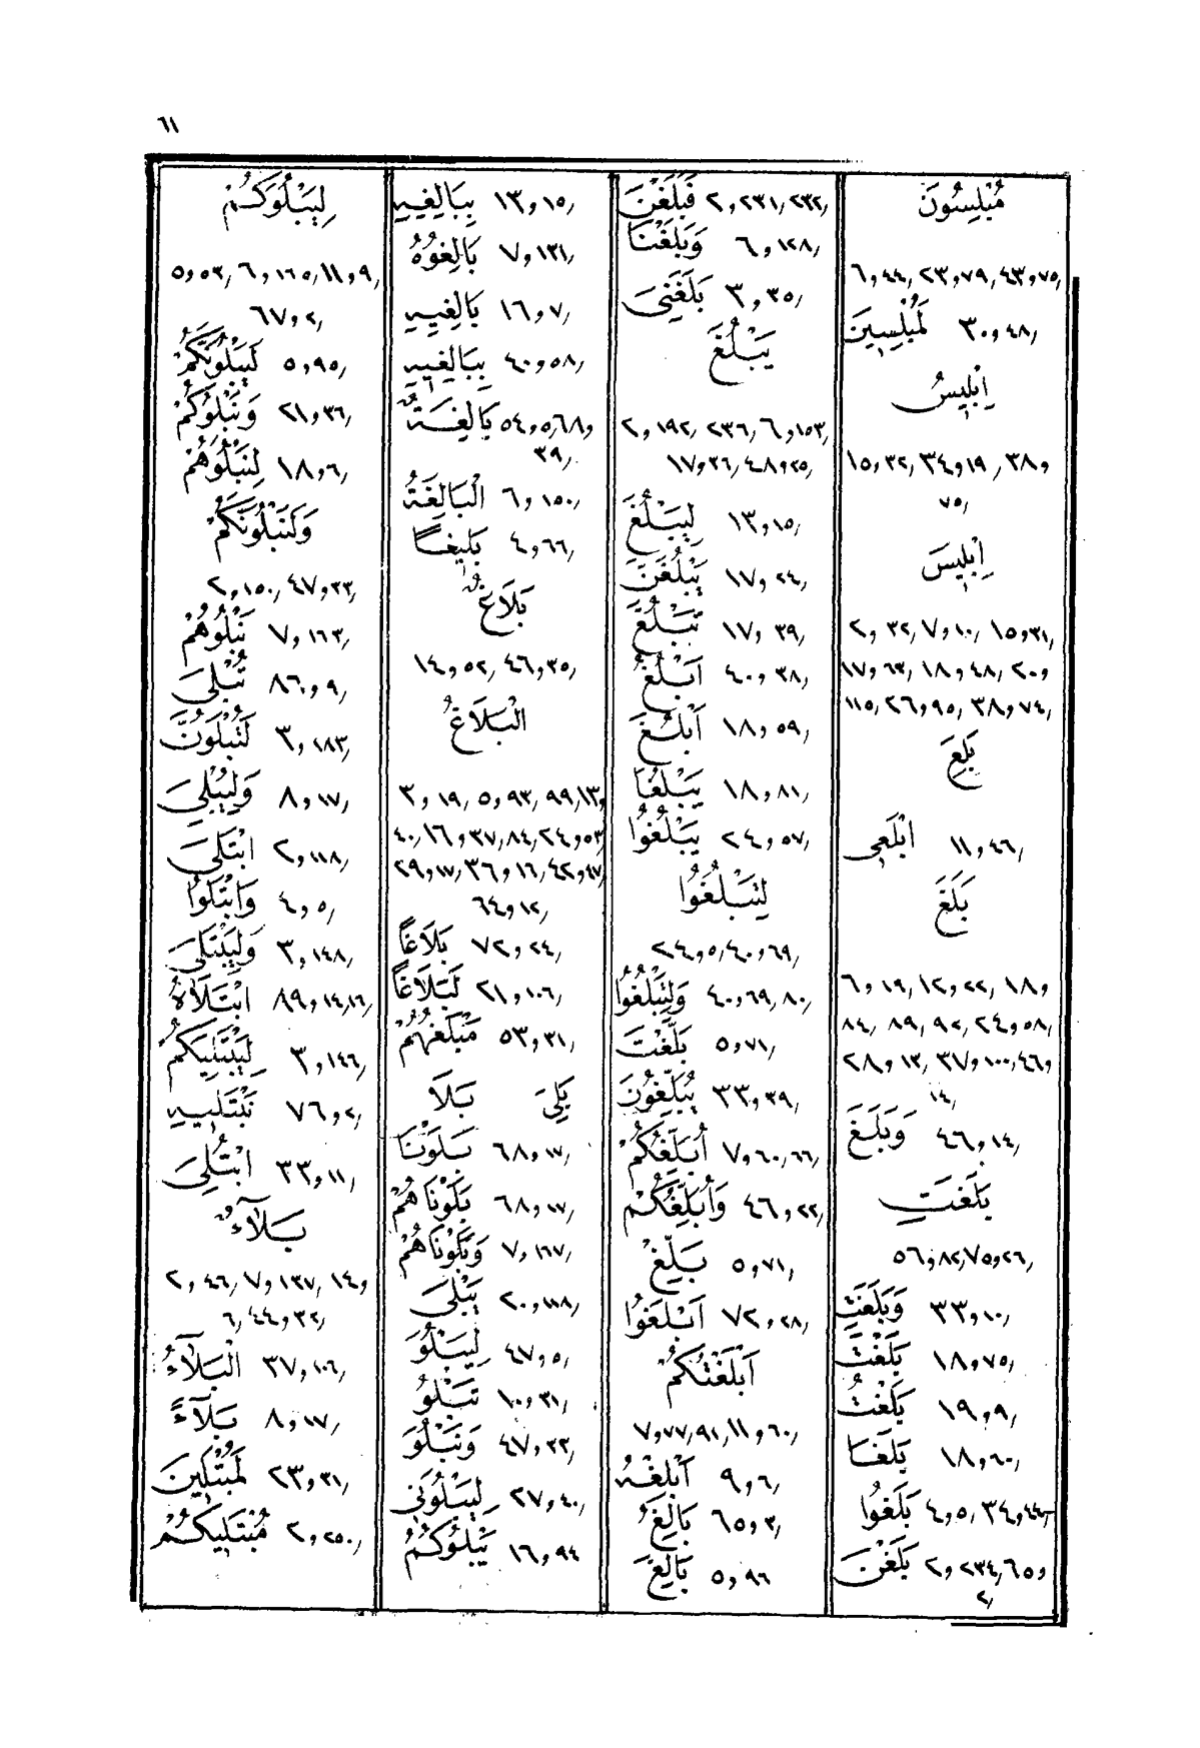 ٦١
مُبْلِسُونَ
٦و٤٤, ٢٣و٧٩, ٤٣و٧٥,
لَمُبْلِسِينَ ٣٠و٤٨,
اِبْلِيسُ
١٥و٣٢, ٣٤و١٩, ٣٨و
٧٥,
اِبْلِيسَ
٢و٣٢, ٧و١٠, ١٥و٣١,
١٧و٦٣, ١٨و٤٨, ٢٠و
١١٥, ٢٦و٩٥, ٣٨و٧٤,
بَلِعَ
ابْلَعِي ١١و٤٦,
بَلَغَ
٦و١٩, ١٢و٢٢, ١٨و
٨٤, ٨٩, ٩٢, ٢٤و٥٨,
٢٨و١٣, ٣٧و١٠٠, ٤٦و
١٤,
وَبَلَغَ ٤٦و١٤,
بَلَغَتِ
٥٦و٨٢, ٧٥و٢٦,
وَبَلَغَتِ ٣٣و١٠,
بَلَغْتَ ١٨و٧٥,
بَلَغْتُ ١٩و٩,
بَلَغَا ١٨و٦٠,
بَلَغُوا ٤و٥, ٣٤و٤٤,
بَلَغْنَ ٢و٢٣٤, ٦٥و
٢,
فَبَلَغْنَ ٢و٢٣١, ٢٣٢,
وَبَلَغْنَا ٦و١٢٨,
بَلَغَنِيَ ٣و٣٥,
يَبْلُغَ
٢و١٩٢, ٢٣٦, ٦و١٥٣,
١٧و٣٦, ٤٨و٢٥,
لِيَبْلُغَ ١٣و١٥,
يَبْلُغَنَّ ١٧و٢٤,
تَبْلُغَ ١٧و٣٩,
اَبْلُغُ ٤٠و٣٨,
اَبْلُغَ ١٨و٥٩,
يَبْلُغَا ١٨و٨١,
يَبْلُغُوا ٢٤و٥٧,
لِتَبْلُغُوا
٢٢و٥, ٤٠و٦٩,
وَلِتَبْلُغُوا ٤٠و٦٩, ٨٠,
بَلَّغْتَ ٥و٧١,
يُبَلِّغُونَ ٣٣و٣٩,
اُبَلِّغُكُمْ ٧و٦٠, ٦٦,
وَاُبَلِّغُكُمْ ٤٦و٢٢,
بَلِّغْ ٥و٧١,
اَبْلَغُوا ٧٢و٢٨,
اَبْلَغْتُكُمْ
٧و٧٧, ٩١, ١١و٦٠,
اَبْلِغْهُ ٩و٦,
بَالِغُ ٦٥و٣,
بَالِغَ ٥و٩٦
بِبَالِغِيهِ ١٣و١٥,
بَالِغُوهُ ٧و١٣١,
بَالِغِيهِ ١٦و٧,
بِبَالِغِيهِ ٤٠و٥٨,
بَالِغَةٌ ٥٤و٥, ٦٨و
٣٩,
الْبَالِغَةُ ٦و١٥٠,
بَلِيغًا ٤و٦٦,
بَلَاغٌ
١٤و٥٢, ٤٦و٣٥,
الْبَلَاغُ
٣و١٩, ٥و٩٣, ٩٩, ١٣و
٤٠, ١٦و٣٧, ٨٤, ٢٤و٥٣,
٢٩و١٧, ٣٦و١٦, ٤٢و٤٧,
٦٤و١٢,
بَلَاغًا ٧٢و٢٤,
لَبَلَاغًا ٢١و١٠٦,
مَبْلَغُهُمْ ٥٣و٣١,
بَلِيَ بَلَا
بَلَوْنَا ٦٨و١٧,
بَلَوْنَاهُمْ ٦٨و١٧,
وَبَلَوْنَاهُمْ ٧و١٦٧,
يَبْلَى ٢٠و١١٨,
لِيَبْلُوَ ٤٧و٥,
تَبْلُو ١٠و٣١,
وَنَبْلُوَ ٤٧و٣٣,
لِيَبْلُوَنِي ٢٧و٤٠,
يَبْلُوكُمُ ١٦و٩٤
لِيَبْلُوَكُمْ
٥و٥٣, ٦و١٦٥, ١١و٩,
٦٧و٢,
لَيَبْلُوَنَّكُمُ ٥و٩٥,
وَنَبْلُوكُمْ ٢١و٣٦,
لِنَبْلُوَهُمْ ١٨و٦,
وَلَنَبْلُوَنَّكُمْ
٢و١٥٠, ٤٧و٣٣,
نَبْلُوهُمْ ٧و١٦٣,
تُبْلَى ٨٦و٩,
لَتُبْلَوُنَّ ٣و١٨٣,
وَلِيُبْلِيَ ٨و١٧,
ابْتَلَى ٢و١١٨,
وَابْتَلُوا ٤و٥,
وَلِيَبْتَلِيَ ٣و١٤٨,
ابْتَلَاهُ ٨٩و١٤, ١٦,
لِيَبْتَلِيَكُمْ ٣و١٤٦,
نَبْتَلِيهِ ٧٦و٢,
ابْتُلِيَ ٣٣و١١,
بَلَآءٌ
٢و٤٦, ٧و١٣٧, ١٤و
٦, ٤٤و٣٢,
الْبَلَآءُ ٣٧و١٠٦,
بَلَآءً ٨و١٧,
لَمُبْتَلِينَ ٢٣و٣١,
مُبْتَلِيكُمْ ٢و٢٥٠,